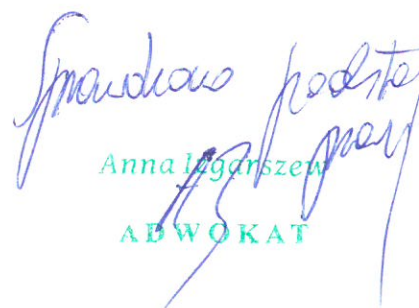 Sprawdzono podsta
praw
Anna Izgarszew
ADWOKAT